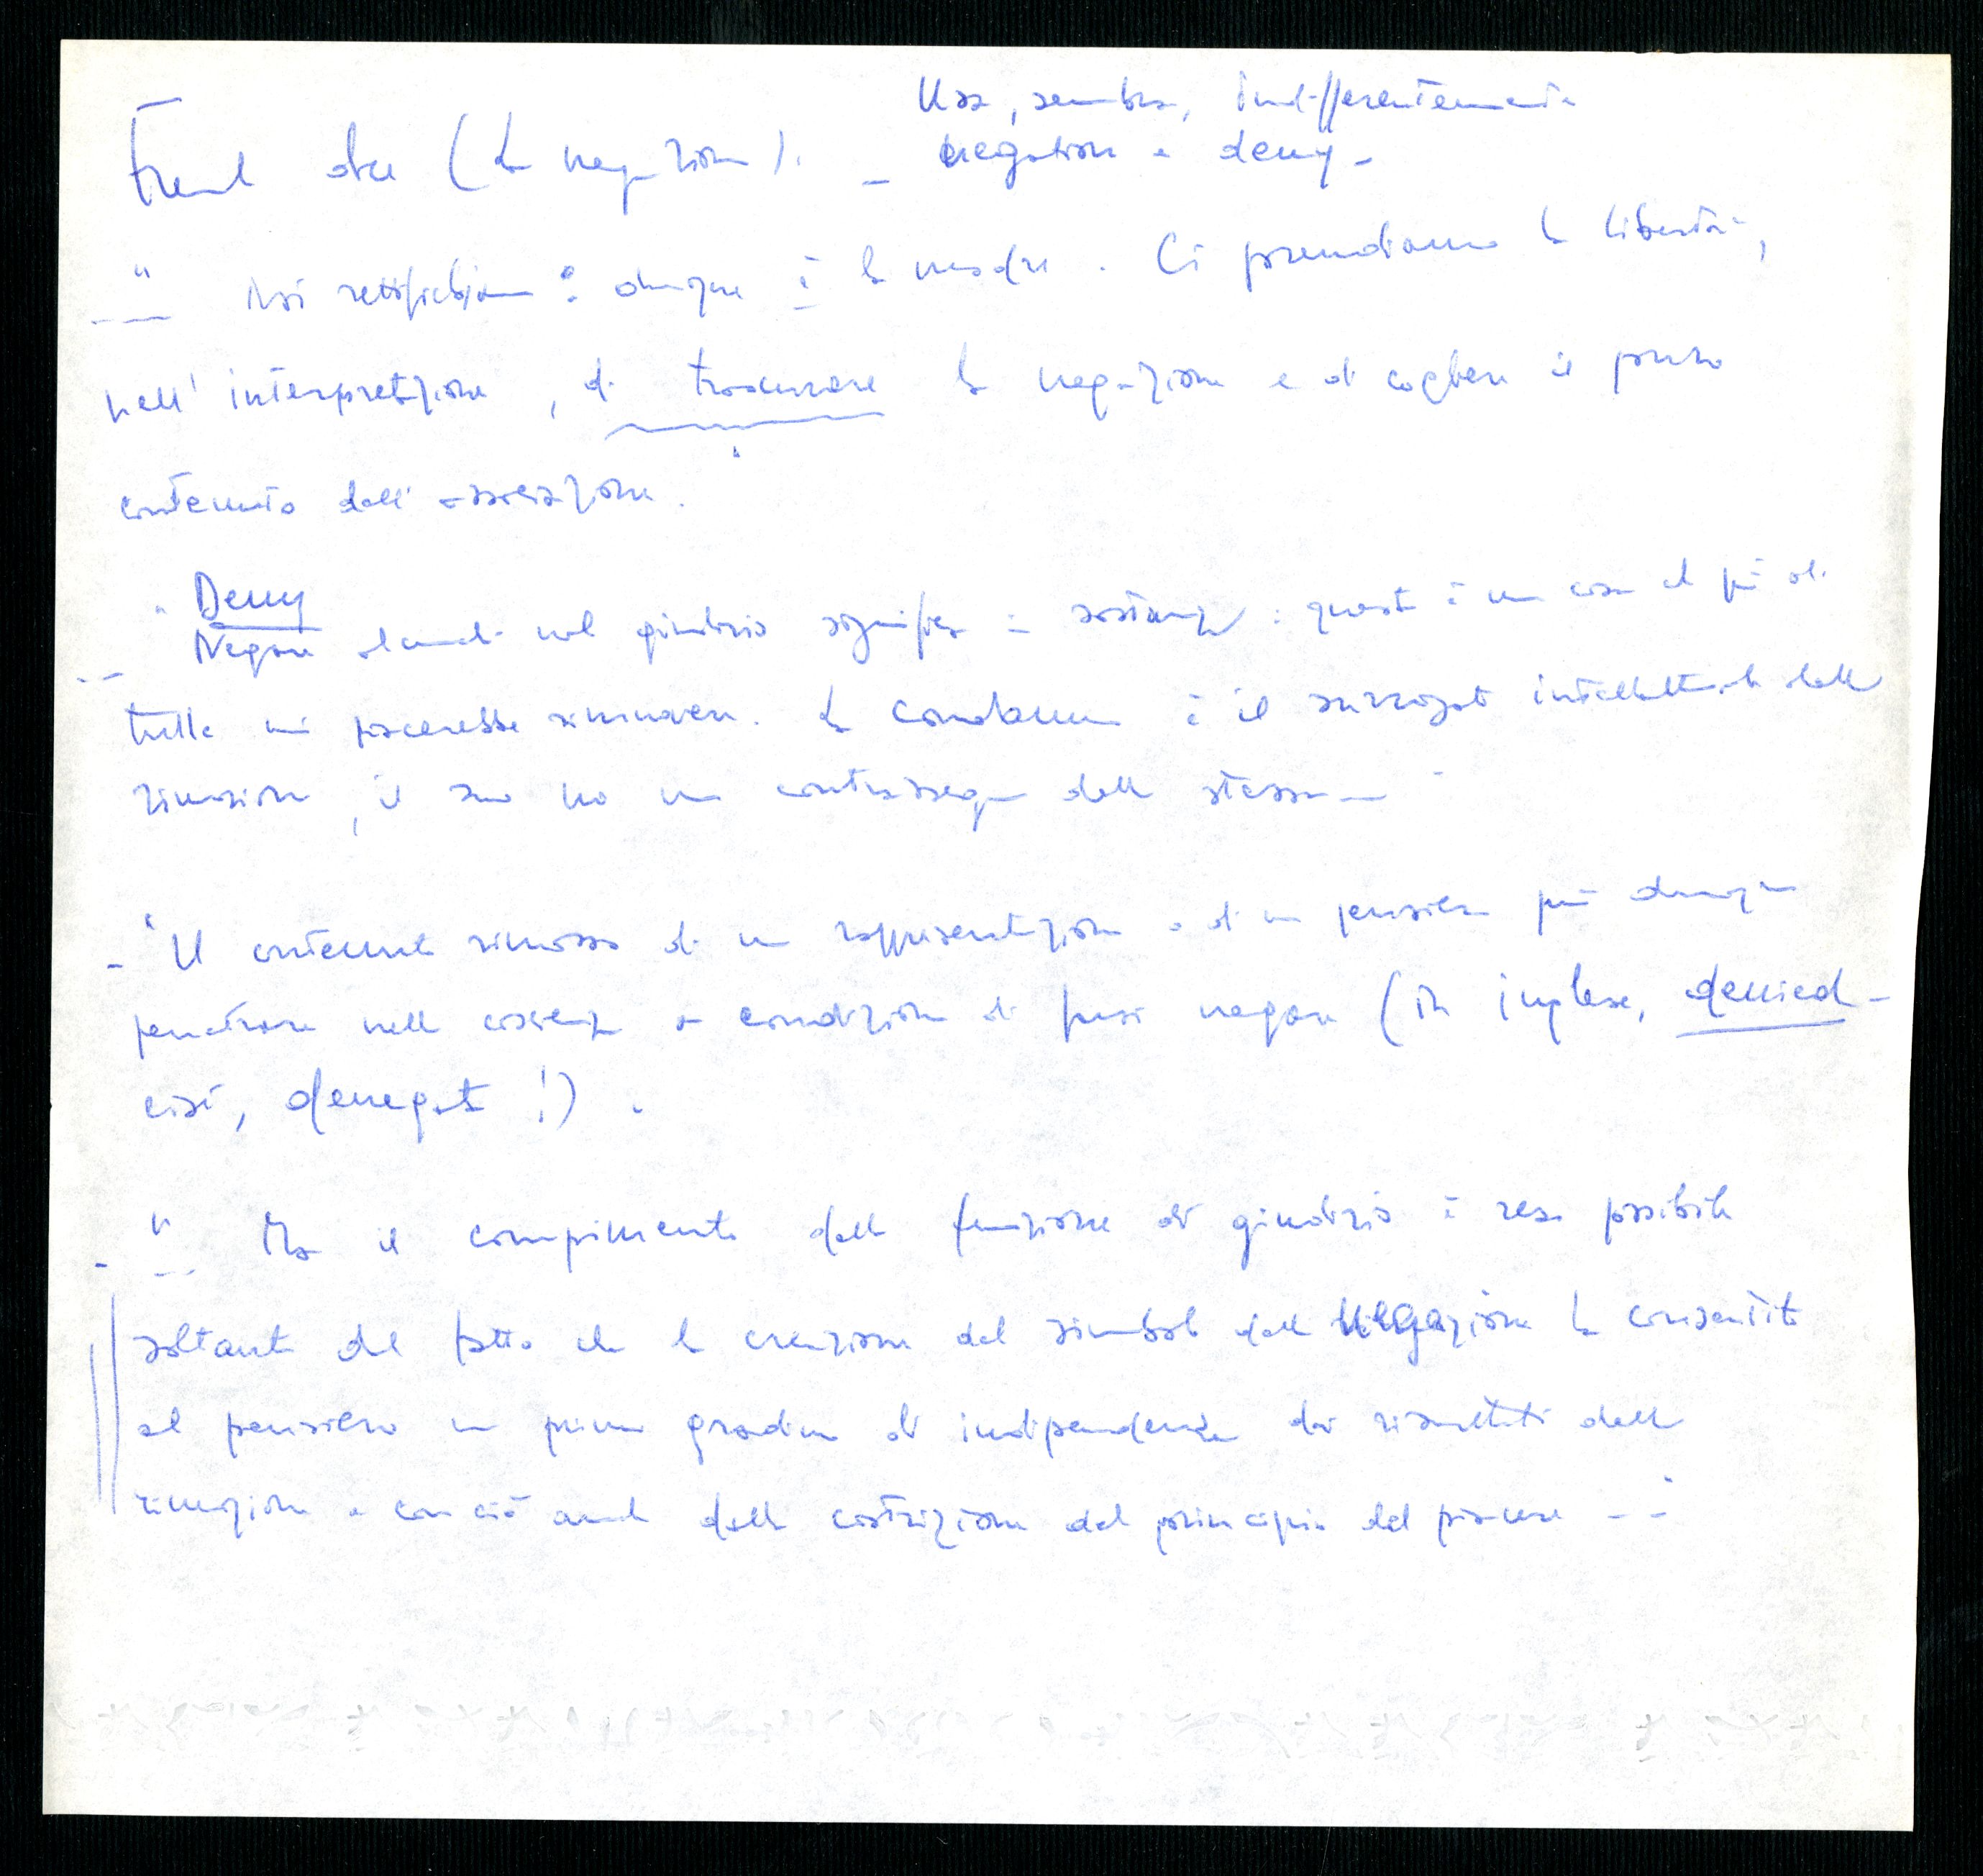 Usa, sembra, indifferentemente
Freud dice (La negazione). – negation e deny –
" Noi rettifichiamo: dunque è la madre. Ci prendiamo la libertà,
nell'interpretazione, di trascurare la negazione e di cogliere il puro
contenuto dell'associazione.
Deny
– " Negare alcunché nel giudizio significa in sostanza: questa è una cosa che più di
tutto mi piacerebbe rimuovere. La condanna è il surrogato intellettuale della
rimozione, il suo no un contrassegno della stessa — "
– "Il contenuto rimosso di una rappresentazione o di un pensiero può dunque
penetrare nella coscienza a condizione di farsi negare (in inglese, denied –
cioè, denegato!).
– " Ma il compimento della funzione di giudizio è reso possibile
soltanto dal fatto che la creazione del simbolo della negazione ha consentito
al pensiero un primo grado di indipendenza dai risultati della
rimozione e con ciò anche dalla costrizione del principio del piacere – – "